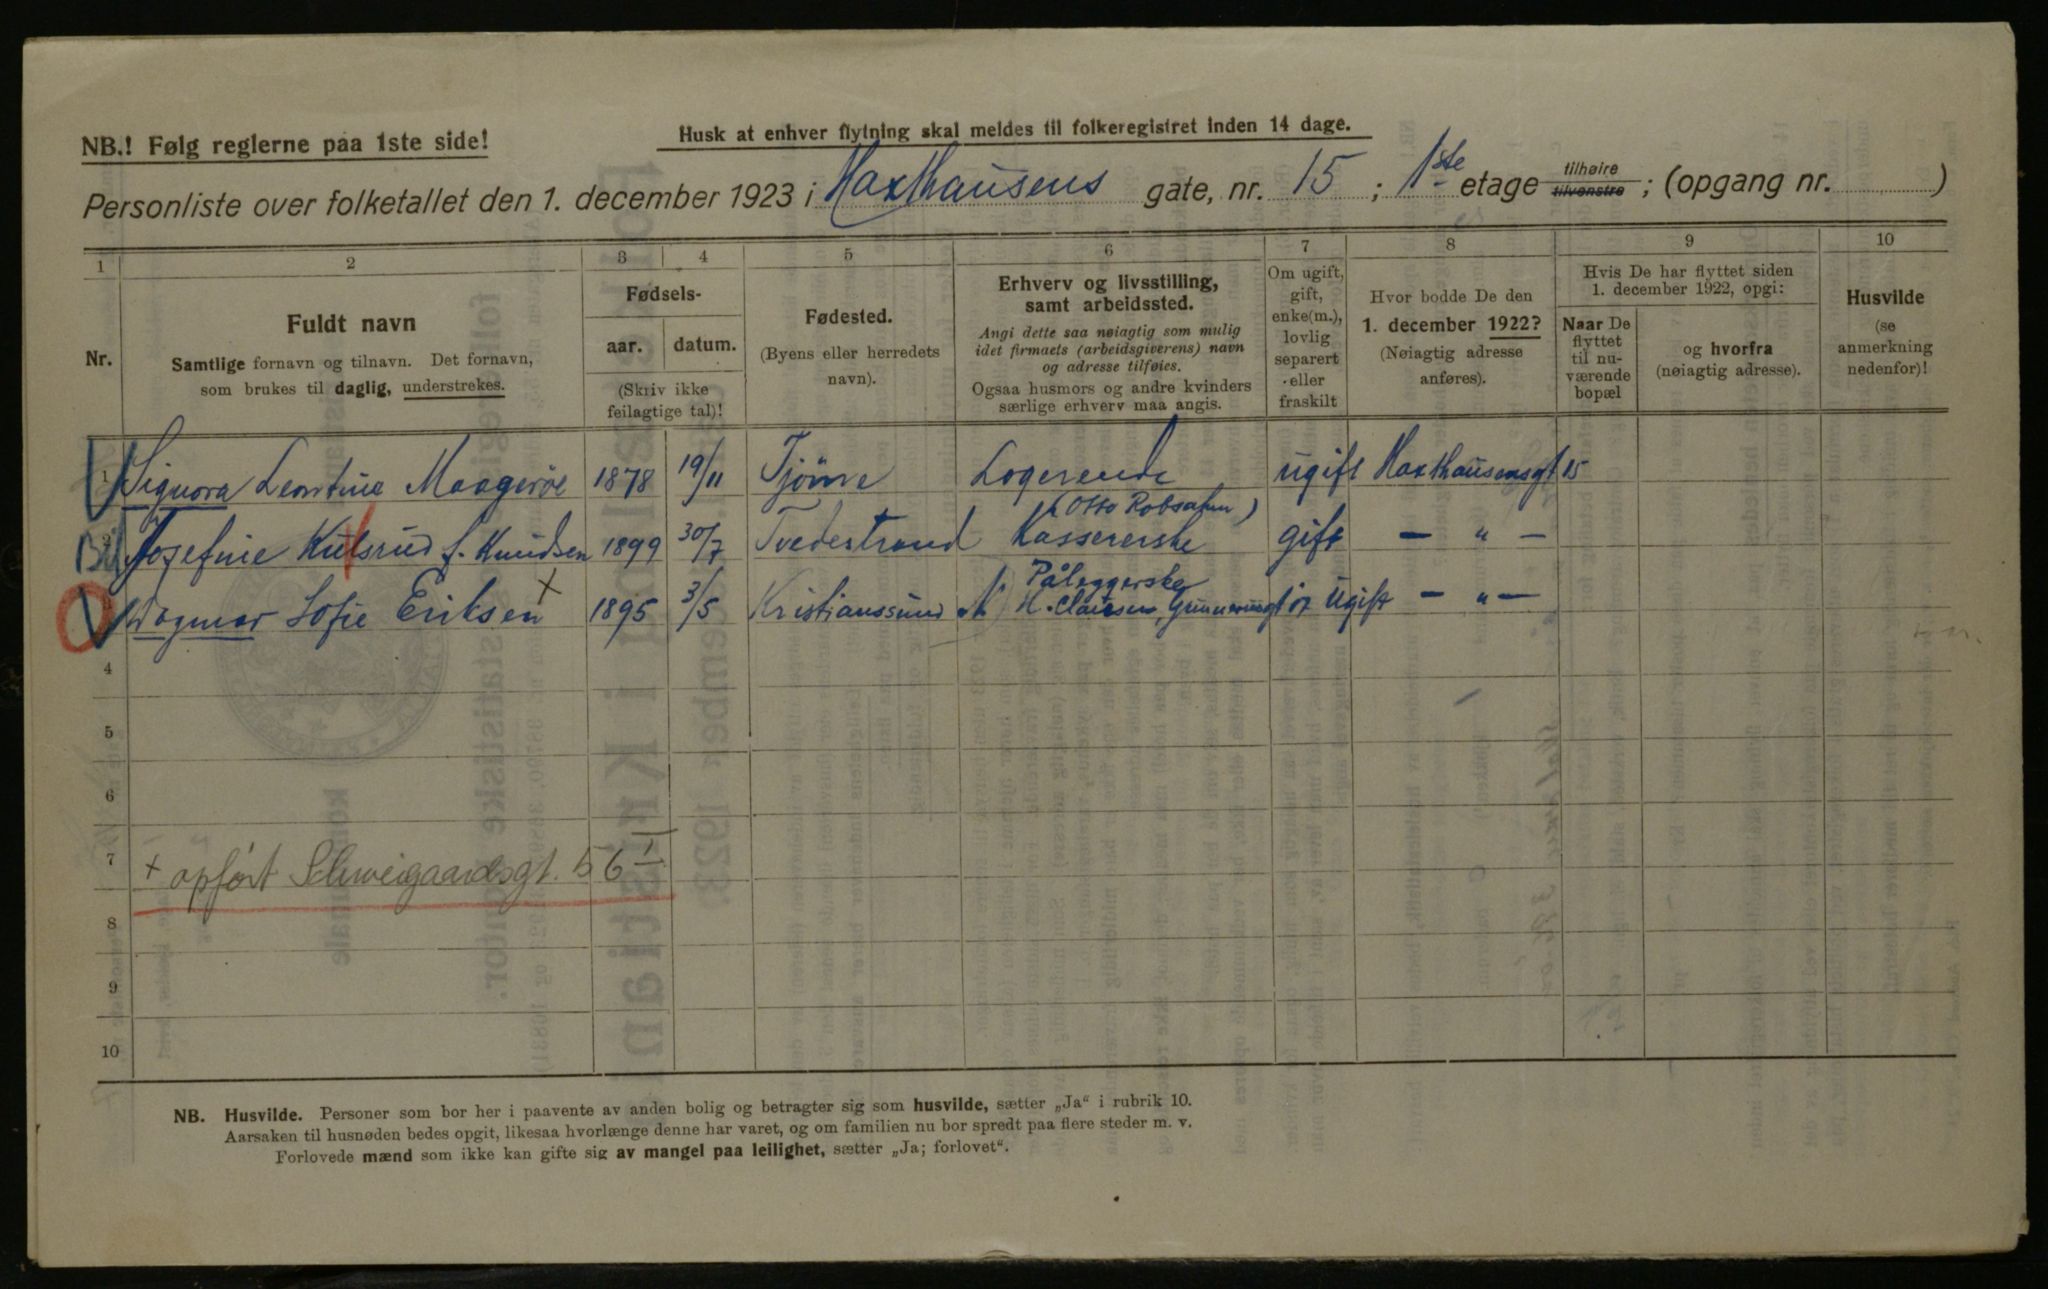 NB.! Følg reglerne paa 1ste side!
Husk at enhver flytning skal meldes til folkeregistret inden 14 dage.
Personliste over folketallet den 1. december 1923 i Haxthausens gate, nr. 15 ; 1ste etage tilhøire tilvenstre ; (opgang nr. )
1 2 3 4 5 6 7 8 9 10
Nr.
Fuldt navn
Samtlige fornavn og tilnavn. Det fornavn,
som brukes til daglig, understrekes.
Fødsels-
aar. datum.
(Skriv ikke
feilagtige tal)!
Fødested.
(Byens eller herredets
navn).
Erhverv og livsstilling,
samt arbeidssted.
Angi dette saa nøiagtig som mulig
idet firmaets (arbeidsgiverens) navn
og adresse tilføies.
Ogsaa husmors og andre kvinders
særlige erhverv maa angis.
Om ugift,
gift,
enke(m.),
lovlig
separert
eller
fraskilt
Hvor bodde De den
1. december 1922?
(Nøiagtig adresse
anføres).
Hvis De har flyttet siden
1. december 1922, opgi:
Naar De
flyttet
til nu-
værende
bopæl
og hvorfra
(nøiagtig adresse).
Husvilde
(se
anmerkning
nedenfor)!
1 Signora Leontine Maagerøe 1878 19/11 Tjöme Logerende ugift Haxthausensgt 15
(Otto Robsahm)
2 Josefine Kulsrud f. Knudsen 1899 30/7 Tvedestrand Kassererske gift — " —
Påleggerske
Dagmar Sofie Eriksen x 1895 3/5 Kristianssund N H. Clausen, ugift — " —
4
5
6
7
x opført Schweigaardsgt. 56 I
8
9
10
NB. Husvilde. Personer som bor her i paavente av anden bolig og betragter sig som husvilde, sætter „Ja“ i rubrik 10.
Aarsaken til husnøden bedes opgit, likesaa hvorlænge denne har varet, og om familien nu bor spredt paa flere steder m. v.
Forlovede mænd som ikke kan gifte sig av mangel paa leilighet, sætter „Ja; forlovet“.